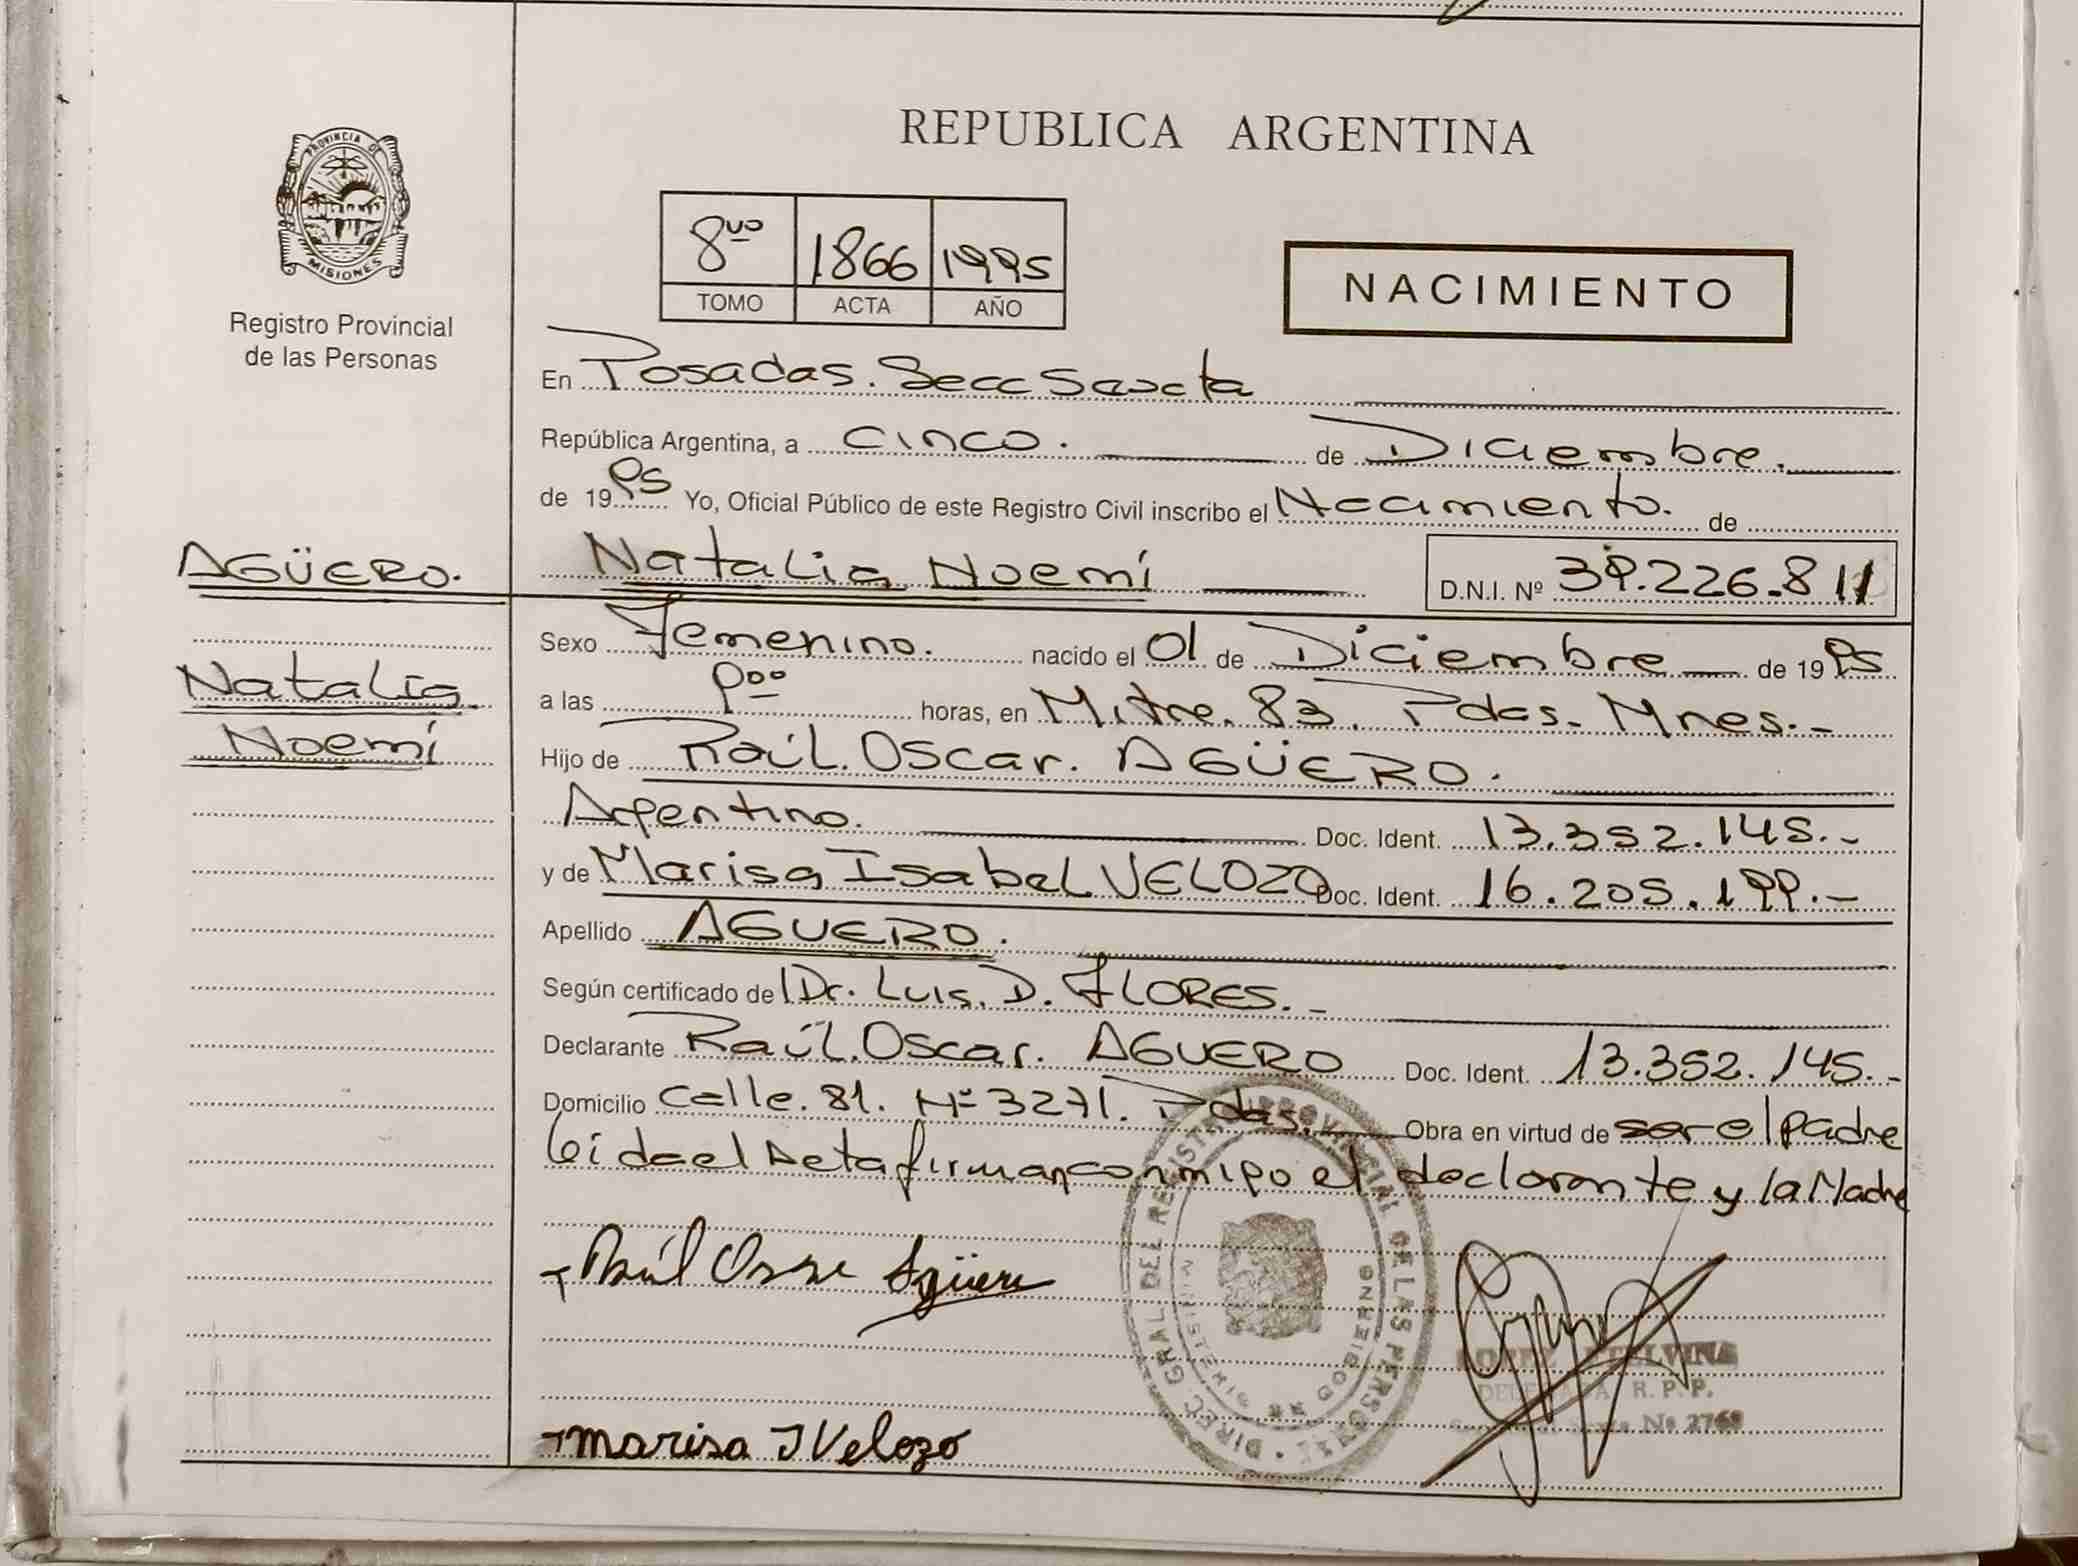 PROVINCIA DE
MISIONES
Registro Provincial
de las Personas
REPUBLICA ARGENTINA
8vo 1866 1995
TOMO ACTA AÑO
NACIMIENTO
En Posadas. Secc Sexta
República Argentina, a cinco. de Diciembre.
de 1995 Yo, Oficial Público de este Registro Civil inscribo el Nacimiento. de
AGÜERO. Natalia Noemí D.N.I. Nº 39.226.811
Sexo Femenino. nacido el 01 de Diciembre de 1995
Natalia
a las 9oo horas, en Mitre. 83. Pdas. Mnes.-
Noemí
Hijo de Raúl. Oscar. AGÜERO.
Argentino. Doc. Ident. 13.352.145.-
y de Marisa Isabel VELOZO Doc. Ident. 16.205.199.-
Apellido AGUERO.
Según certificado de Dr. Luis. D. FLORES.-
Declarante Raúl. Oscar. AGUERO Doc. Ident. 13.352.145.-
Domicilio Calle. 81. Nº 3271. Pdas. Obra en virtud de ser el padre
leida el Acta firman conmigo el declarante y la Madre
Raúl Oscar Agüero
DIREC. GRAL DEL REGISTRO PROVINCIAL DE LAS PERSONAS
MINISTERIO GOBIERNO
R. P. P.
Nº 2769
Marisa I Velozo